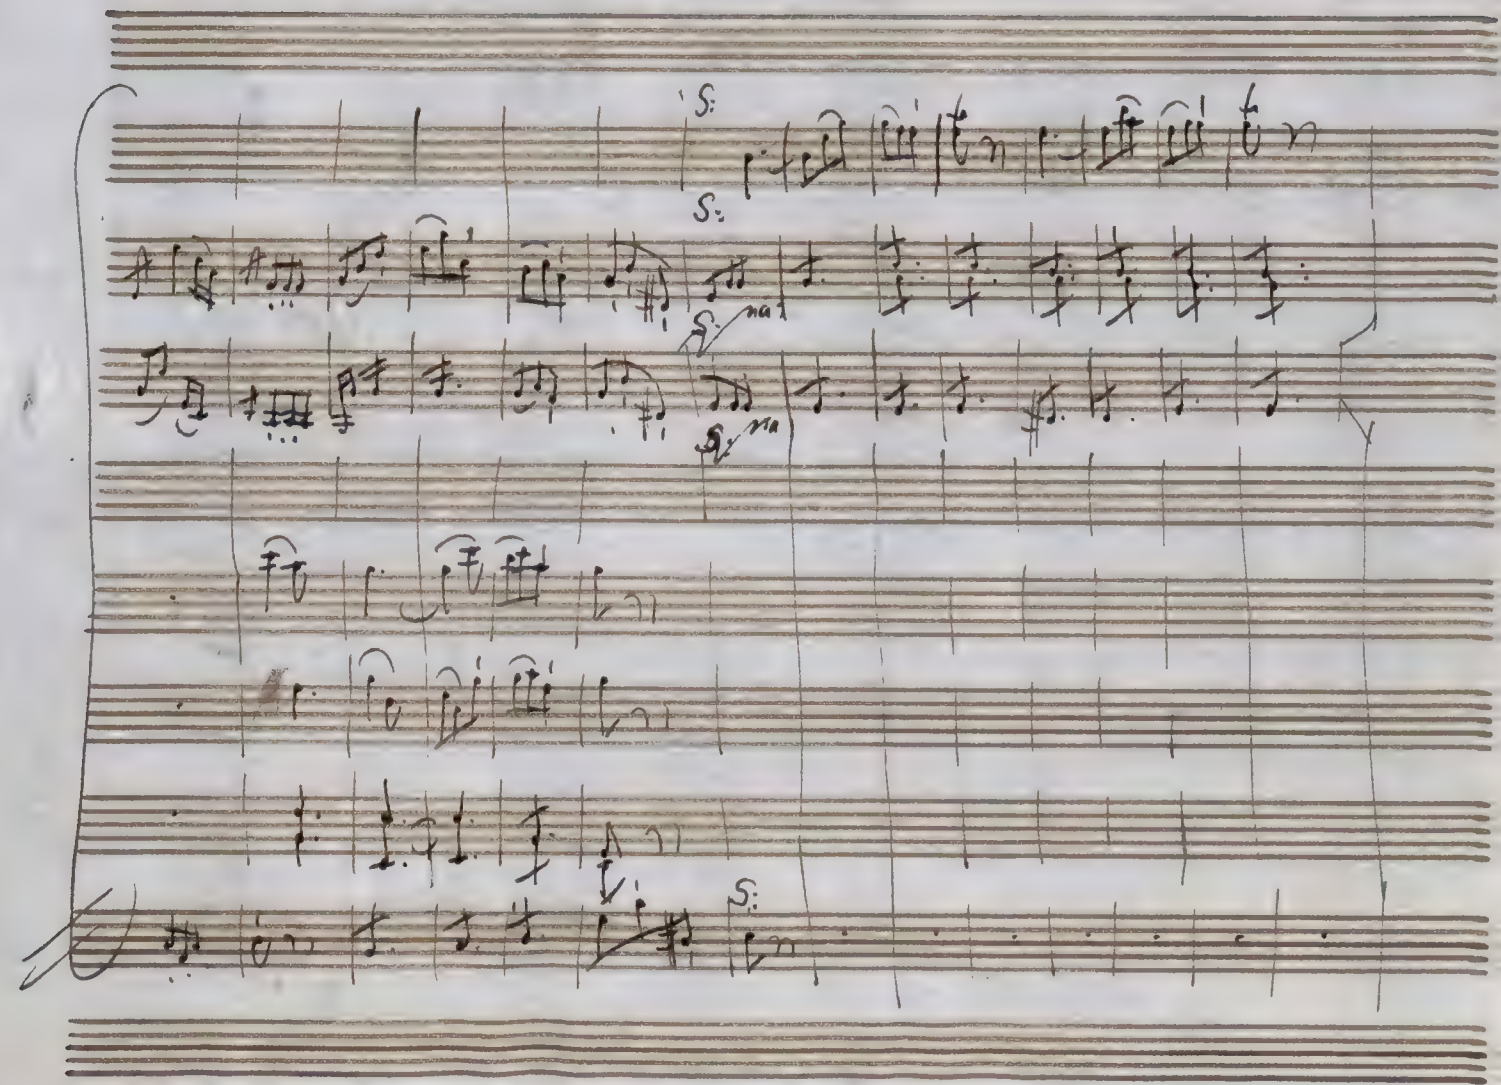 S:
S:
S: na:
S: na
S: